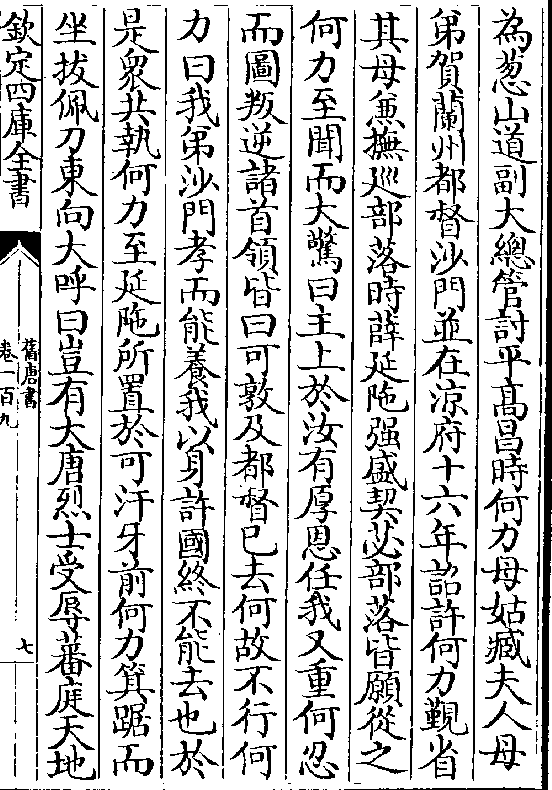 為葱山道副大總管討平髙昌時何力母姑臧夫人母
弟賀蘭州都督沙門並在凉府十六年詔許何力覲省
其母兼撫巡部落時薛延陁强盛契苾部落皆願從之
何力至聞而大驚曰主上於汝有厚恩任我又重何忍
而圖叛逆諸首領皆曰可敦及都督已去何故不行何
力曰我弟沙門孝而能養我以身許國終不能去也於
是衆共執何力至延陁所置於可汗牙前何力箕踞而
坐拔佩刀東向大呼曰豈有大唐烈士受辱蕃庭天地
欽定四庫全書
舊唐書
卷一百九
七